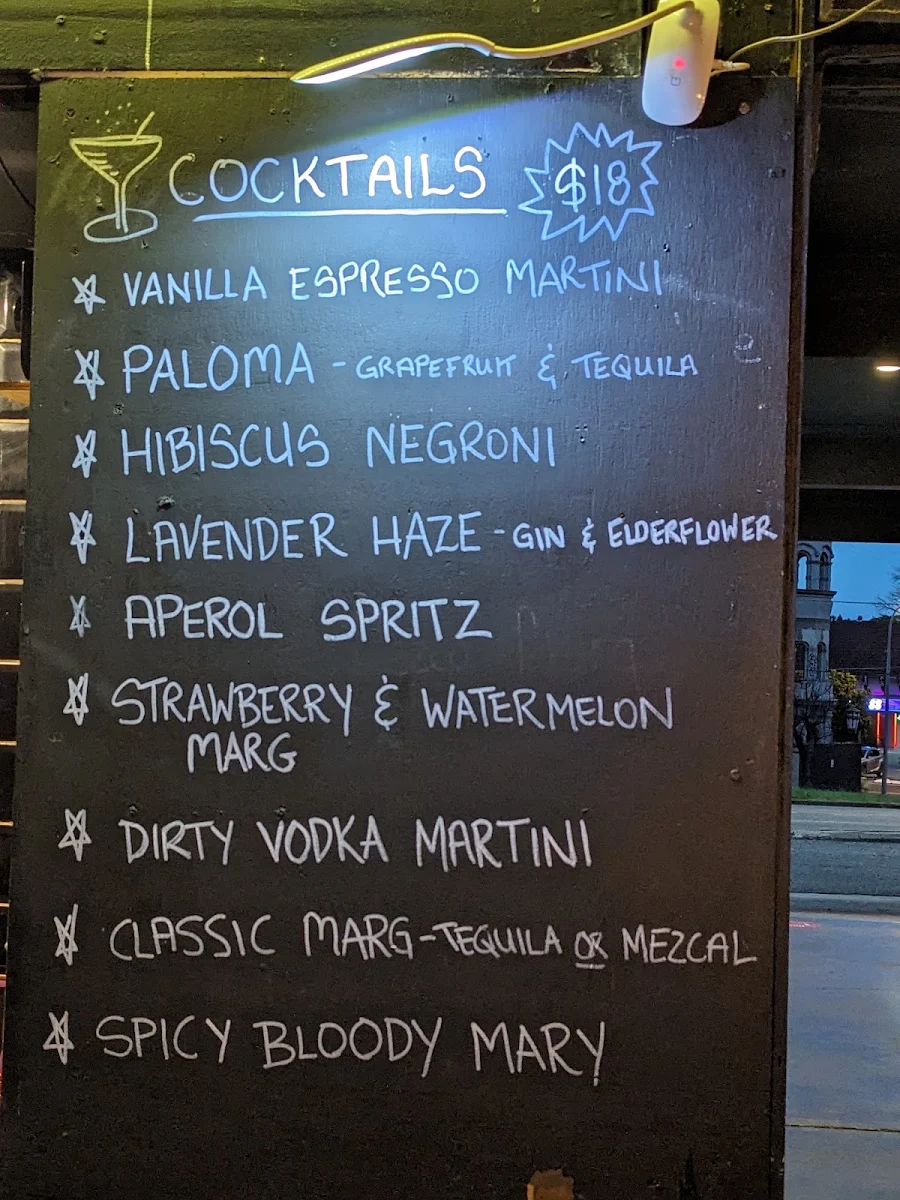 COCKTAILS $18
VANILLA ESPRESSO MARTINI
PALOMA - GRAPEFRUIT & TEQUILA
HIBISCUS NEGRONI
LAVENDER HAZE - GIN & ELDERFLOWER
APEROL SPRITZ
STRAWBERRY & WATERMELON
MARG
DIRTY VODKA MARTINI
CLASSIC MARG - TEQUILA OR MEZCAL
SPICY BLOODY MARY